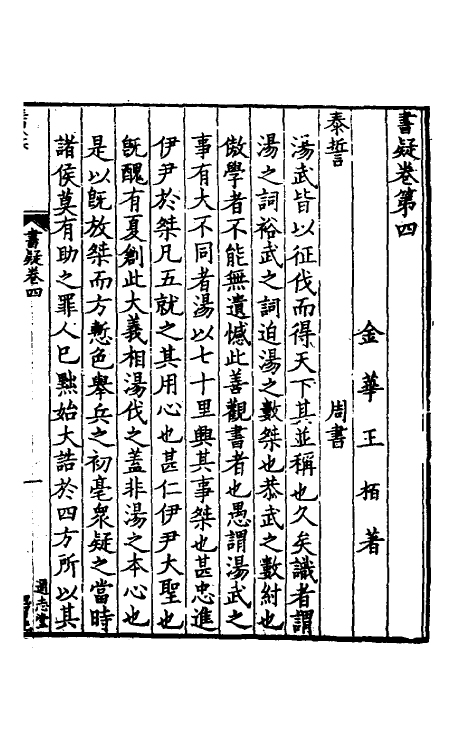 書疑卷第四
金華王柏著
泰誓
周書
湯武皆以征伐而得天下其並稱也久矣識者謂
湯之詞裕武之詞迫湯之數桀也恭武之數紂也
傲學者不能無遺憾此善觀書者也愚謂湯武之
事有大不同者湯以七十里興其事桀也甚忠進
伊尹於桀凡五就之其用心也甚仁伊尹大聖也
旣醜有夏創此大義相湯伐之蓋非湯之本心也
是以旣放桀而方慙色舉兵之初亳衆疑之當時
諸侯莫有助之罪人已黜始大誥於四方所以其
書疑卷四
一
通志堂